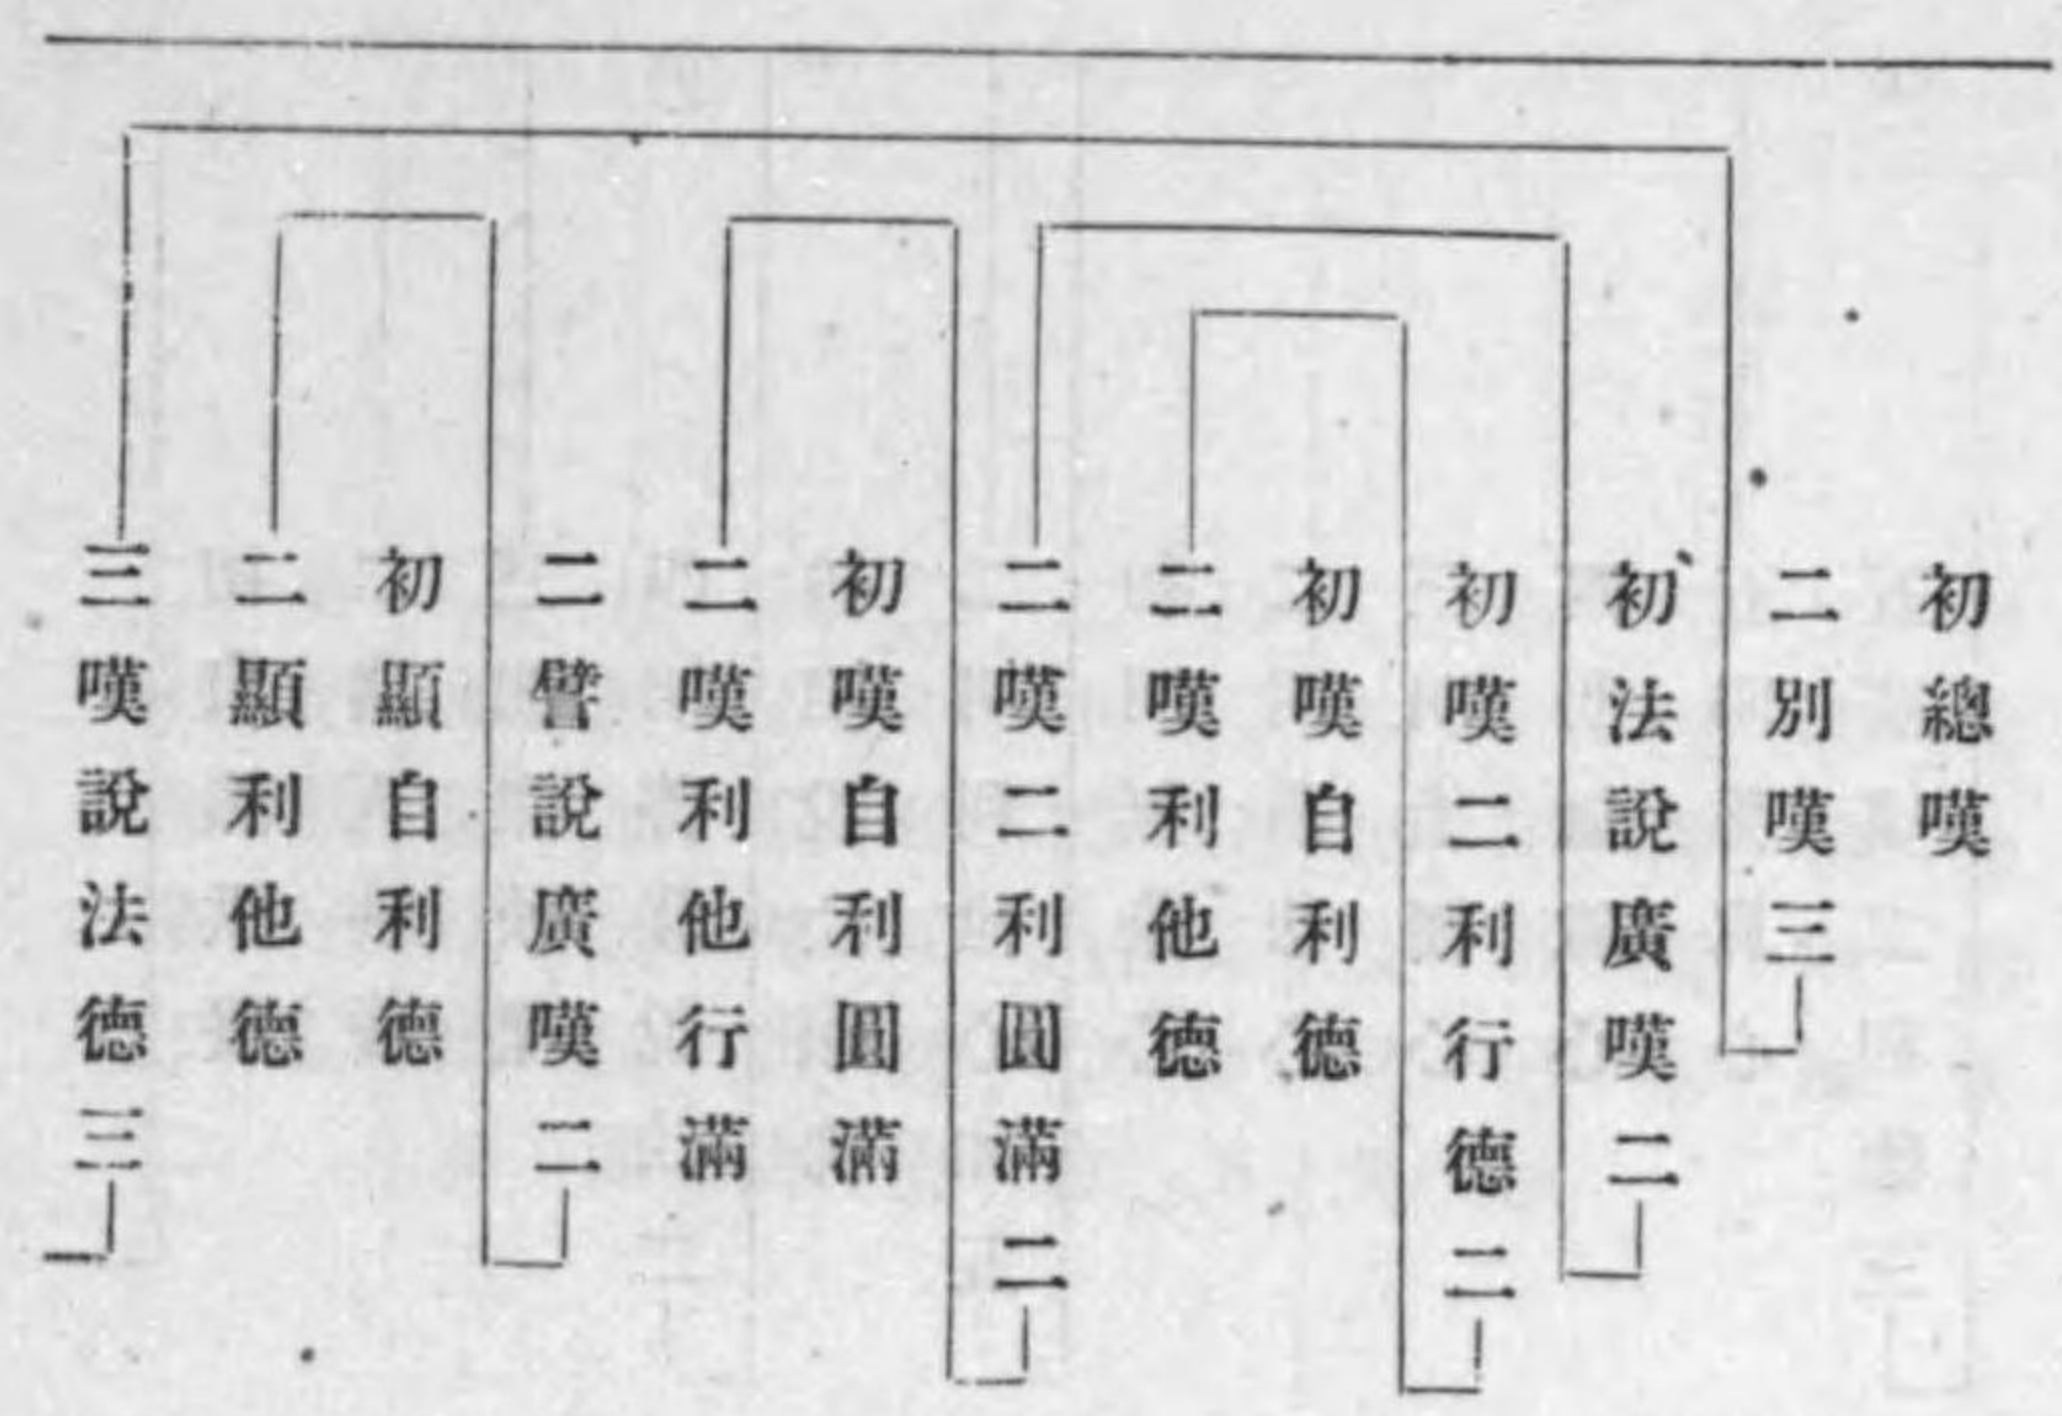 初總嘆
二別嘆三
初法說廣嘆二
初嘆二利行德二
初嘆自利德
二嘆利他德
二嘆二利圓滿二
初嘆自利圓滿
二嘆利他行滿
二譬說廣嘆二
初顯自利德
二顯利他德
三嘆說法德三